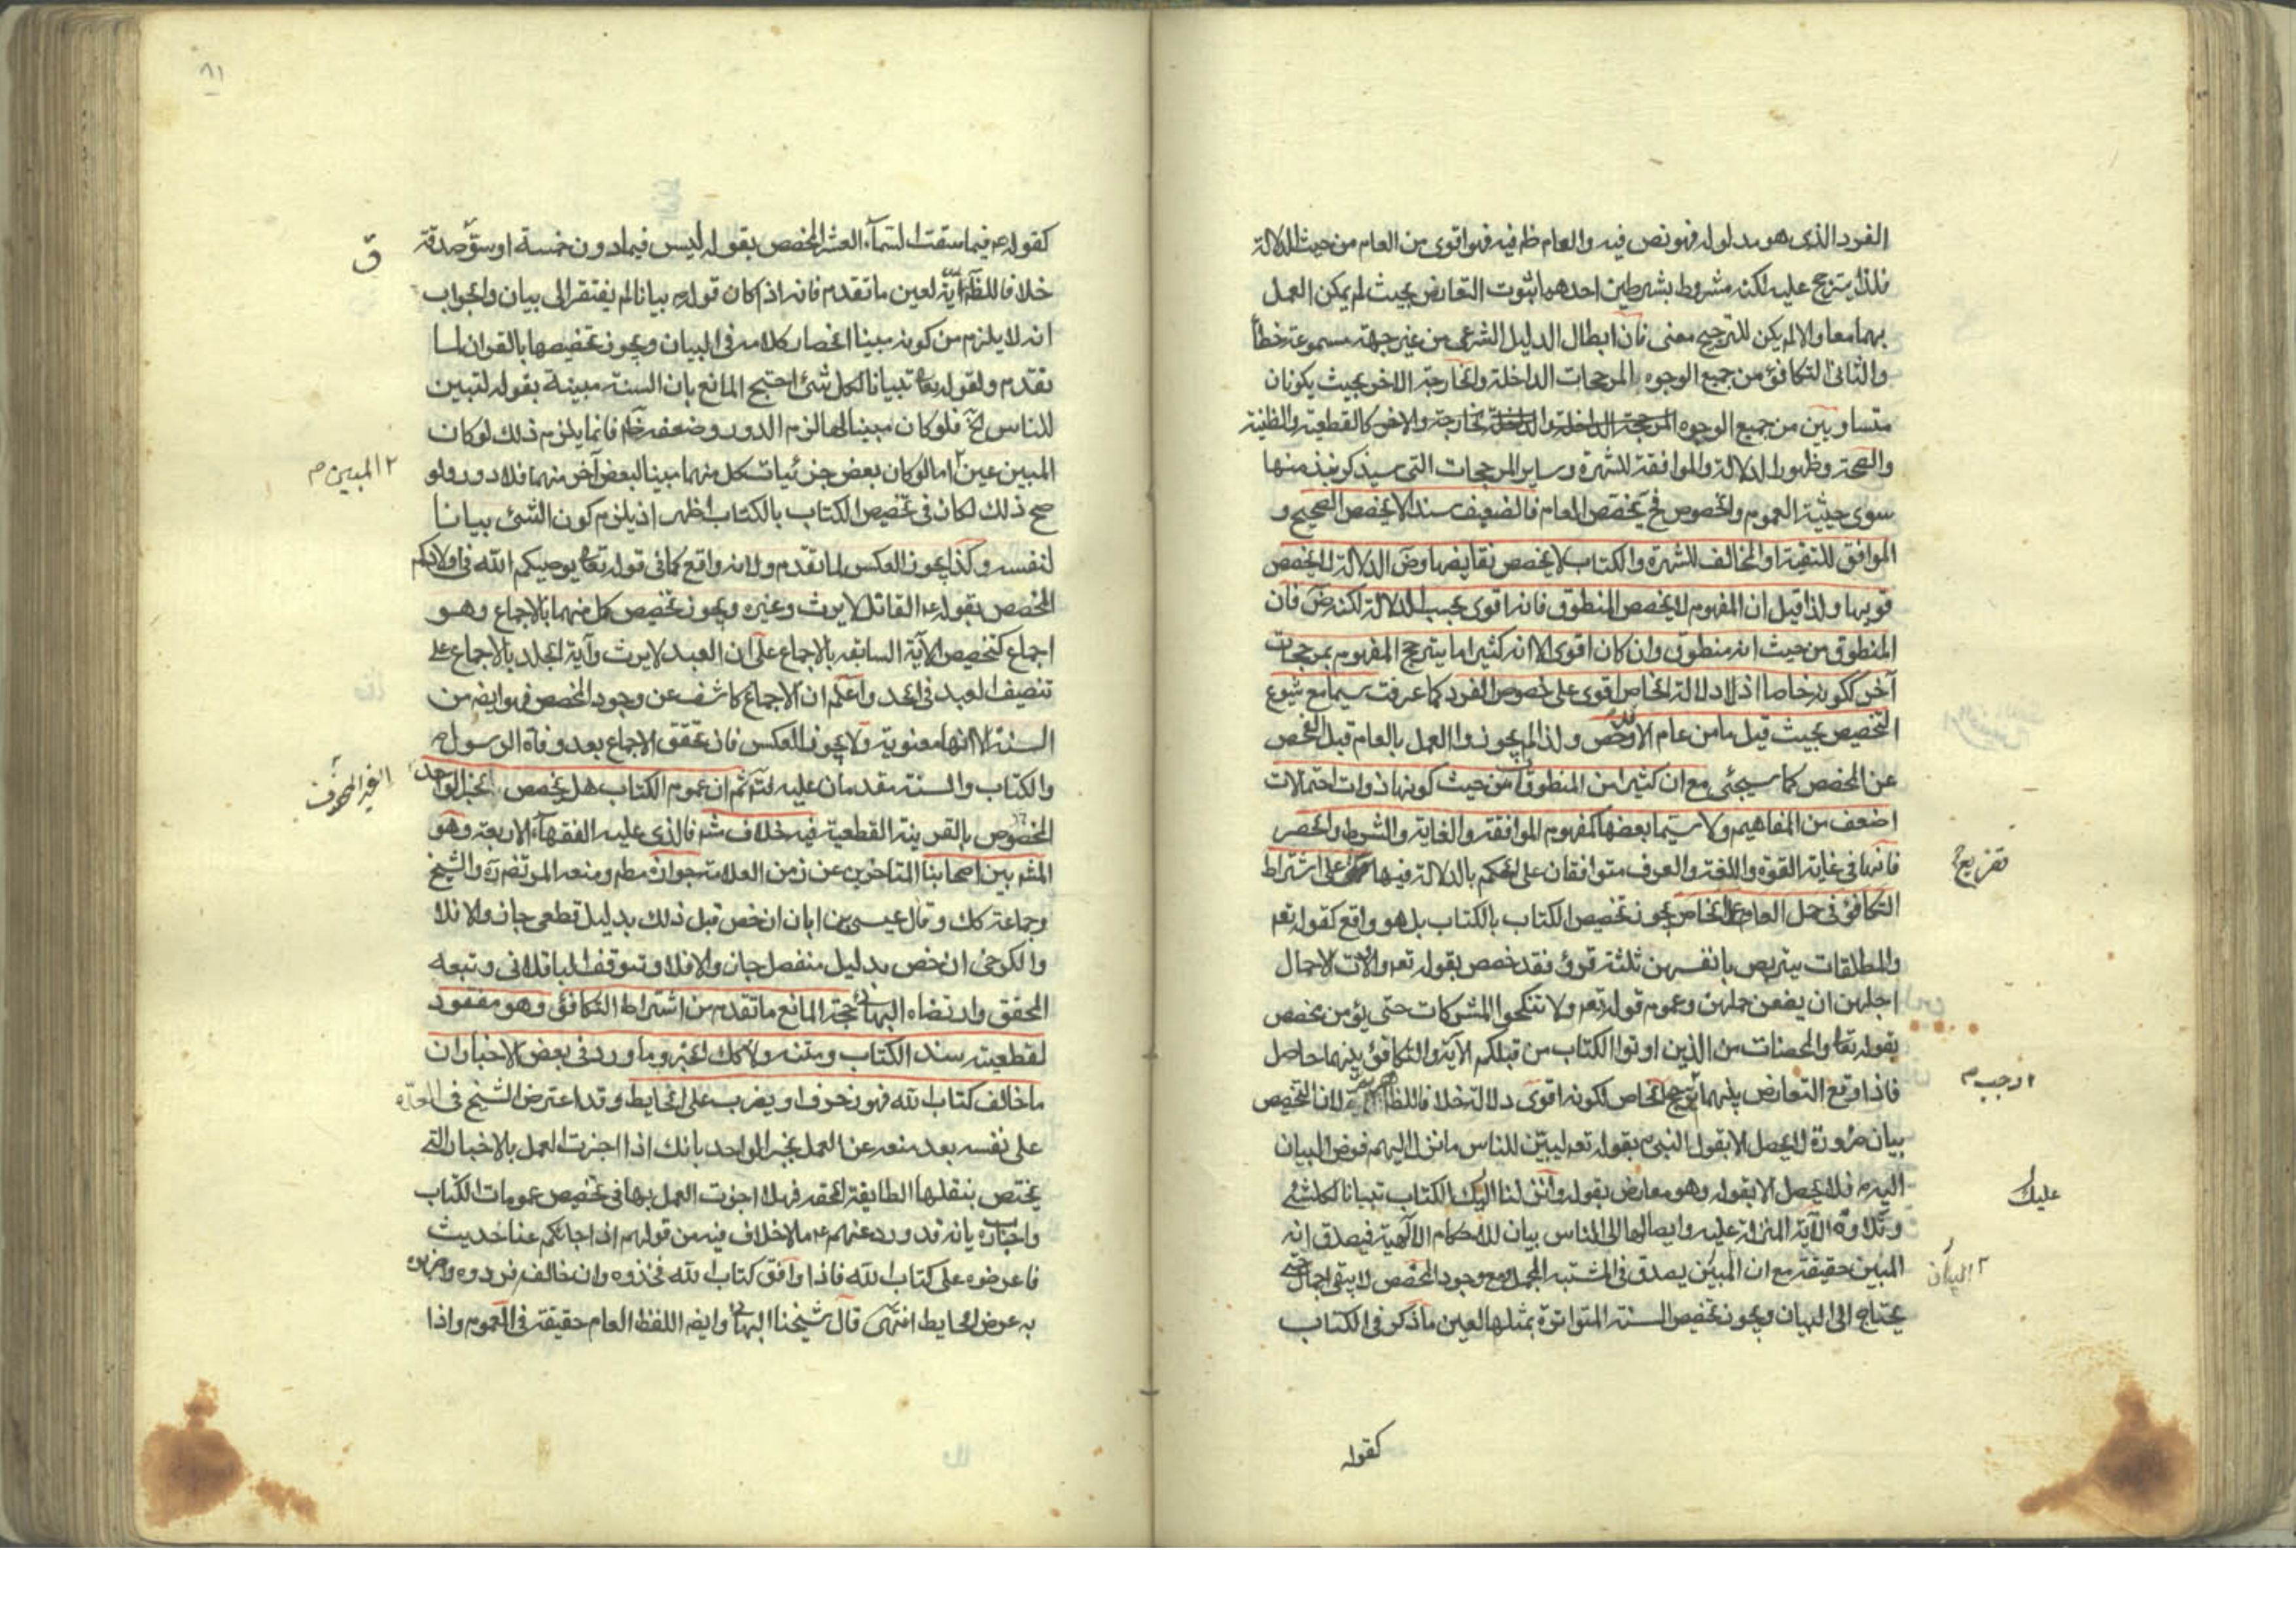 الفرد الذى هو مدلوله فهو نص فيه والعام ظم فيه فهو اقوى من العام من حيث الدلالة
فلذا يترجح عليه لكنه مشروط بشرطين احدهما ثبوت التعارض بحيث لم يمكن العمل
بهما معا والا لم يكن للترجيح معنى فان ابطال الدليل الشرعى من غير جهة مسموعة خطأ
والثانى التكافؤ من جميع الوجوه المرجحات الداخلة والخارجة الاخر بحيث يكونان
متساويين من جميع الوجوه المرجحة الداخلة والخارجة والاخر كالقطعية والظنية
والصحة وظهور الدلالة والموافقة للشهرة وساير المرجحات التى سيذكر نبذ منها
سوى حيثية العموم والخصوص فح يخصص العام فالضعيف سندا لا يخصص الصحيح و
الموافق للتقية او المخالف للشهرة والكتاب لا يخصص نقايضها وض الدلالة لا يخصص
قويها ولذا قيل ان المفهوم لا يخصص المنطوق فانه اقوى بحسب الدلالة لكنه ض فان
المنطوق من حيث انه منطوق وان كان اقوى الا انه كثيرا ما يترجح المفهوم بمرجحات
آخر ككونه خاصا اذ لا دلالة الخاص اقوى على خصوص الفرد كما عرفت سيما مع شيوع
التخصيص بحيث قيل ما من عام الا وقد خص ولذا لم يجوزوا العمل بالعام قبل الفحص
عن المخصص كما سيجئى مع ان كثيرا من المنطوقات من حيث كونها ذوات احتمالات
اضعف من المفاهيم ولا سيما بعضها كمفهوم الموافقة والغاية والشرط والحصر
فانها فى غاية القوة واللغة والعرف متوافقان على الحكم بالدلالة فيها على اشتراط
تفريع
التكافؤ فى حمل العام على الخاص يجوز تخصيص الكتاب بالكتاب بل هو واقع كقوله تعم
والمطلقات يتربصن بانفسهن ثلثة قروء فقد خصص بقوله تعم واولات الاحمال
اجلهن ان يضعن حملهن وعموم قوله تعم ولا تنكحوا المشركات حتى يؤمن مخصص
بقوله تعا والمحصنات من الذين اوتوا الكتاب من قبلكم الآية والتكافؤ بينهما حاصل
فاذا وقع التعارض بينهما ترجح الخاص لكونه اقوى دلالة خلافا للظاهرية لان التخصيص
بيان ضرورة لا يحصل الا بقول النبى م بقوله تعم ليبين للناس ما نزل اليهم فوض البيان
اليه م فلا يحصل الا بقوله وهو معارض بقوله وانزلنا اليك الكتاب تبيانا لكلشئ
عليك
وتلاوة الآية المنزلة عليه وايصالها الى الناس بيان للاحكام الآلهية فيصدق انه
المبين حقيقة مع ان المبين يصدق فى المشتبه المجمل ومع وجود المخصص لا يبقى اجمال حتى
البيان
يحتاج الى البيان ويجوز تخصيص السنة المتواترة بمثلها لعين ما ذكر فى الكتاب
كقوله
٨١
كقوله عم فيما سقت السماء العشر المخصص بقوله ليس فيما دون خمسة اوسق صدقة
ق
خلافا للظاهرية لعين ما تقدم فانه اذا كان قوله م بيانا لم يفتقر الى بيان والجواب
انه لا يلزم من كونه مبينا انحصار كلامه فى البيان ويجوز تخصيصها بالقران لما
تقدم ولقوله تعا تبيانا لكل شئ احتج المانع بان السنة مبينة بقوله لتبين
للناس الخ فلو كان مبينا لها لزم الدور وضعفه ظ فانما يلزم ذلك لو كان
المبين عين اما لو كان بعض جزئيات كل منهما مبينا لبعض آخر منهما فلا دور ولو
المبين م
صح ذلك لكان فى تخصيص الكتاب بالكتاب اظهر اذ يلزم كون الشئ بيانا
لنفسه وكذا يجوز العكس لما تقدم ولانه واقع كما فى قوله تعا يوصيكم الله فى اولادكم
المخصص بقوله ع القاتل لا يرث وغيره ويجوز تخصيص كل منهما بالاجماع وهو
اجماع كتخصيص الآية السابقه بالاجماع على ان العبد لا يرث وآية الجلد بالاجماع على
تنصيف العبد فى الحد واعلم ان الاجماع كاشف عن وجود المخصص فهو ايضه من
السنة الا انها معنوية ولا يجوز العكس فان تحقق الاجماع بعد وفاة الرسول ص
والكتاب والسنة مقدمان عليه فت ثم ان عموم الكتاب هل يخصص بخبر الواحد
الغير المحفوف
المخصوص بالقرينة القطعية فيه خلاف شه فالذى عليه الفقهآء الاربعة وهو
المشه بين اصحابنا المتاخرين عن زمن العلامة جوازه مطم ومنعه المرتضى ره والشيخ
وجماعة كك وقال عيسى بن ابان ان خص قبل ذلك بدليل قطعى جاز والا فلا
والكرخى ان خص بدليل منفصل جاز والا فلا وتوقف الباقلانى وتبعه
المحقق وارتضاه البهائى حجة المانع ما تقدم من اشتراط التكافؤ وهو مفقود
لقطعية سند الكتاب ومتنه ولا كك الخبر وما ورد فى بعض الاخبار ان
ما خالف كتاب الله فهو زخرف او يضرب على الحايط وقد اعترض الشيخ فى العدة
على نفسه بعد منعه عن العمل بخبر الواحد بانك اذا اجزت العمل بالاخبار التى
يختص بنقلها الطايفة المحقه فهلا اجزت العمل بها فى تخصيص عمومات الكتاب
واجاب بانه قد ورد عنهم ع ما لا خلاف فيه من قولهم اذا جائكم عنا حديث
فاعرضوه على كتاب الله فاذا وافق كتاب الله فخذوه وان خالفه فردوه واضربوه
به عرض الحايط انتهى قال شيخنا البهائى وايضه اللفظ العام حقيقة فى العموم واذا